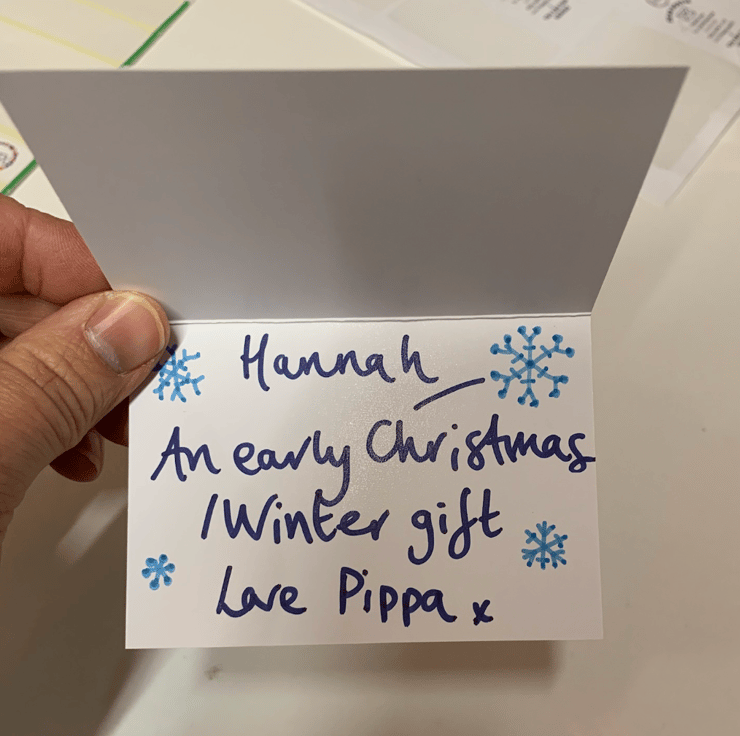 Hannah
An early Christmas
/Winter gift
Love Pippa x